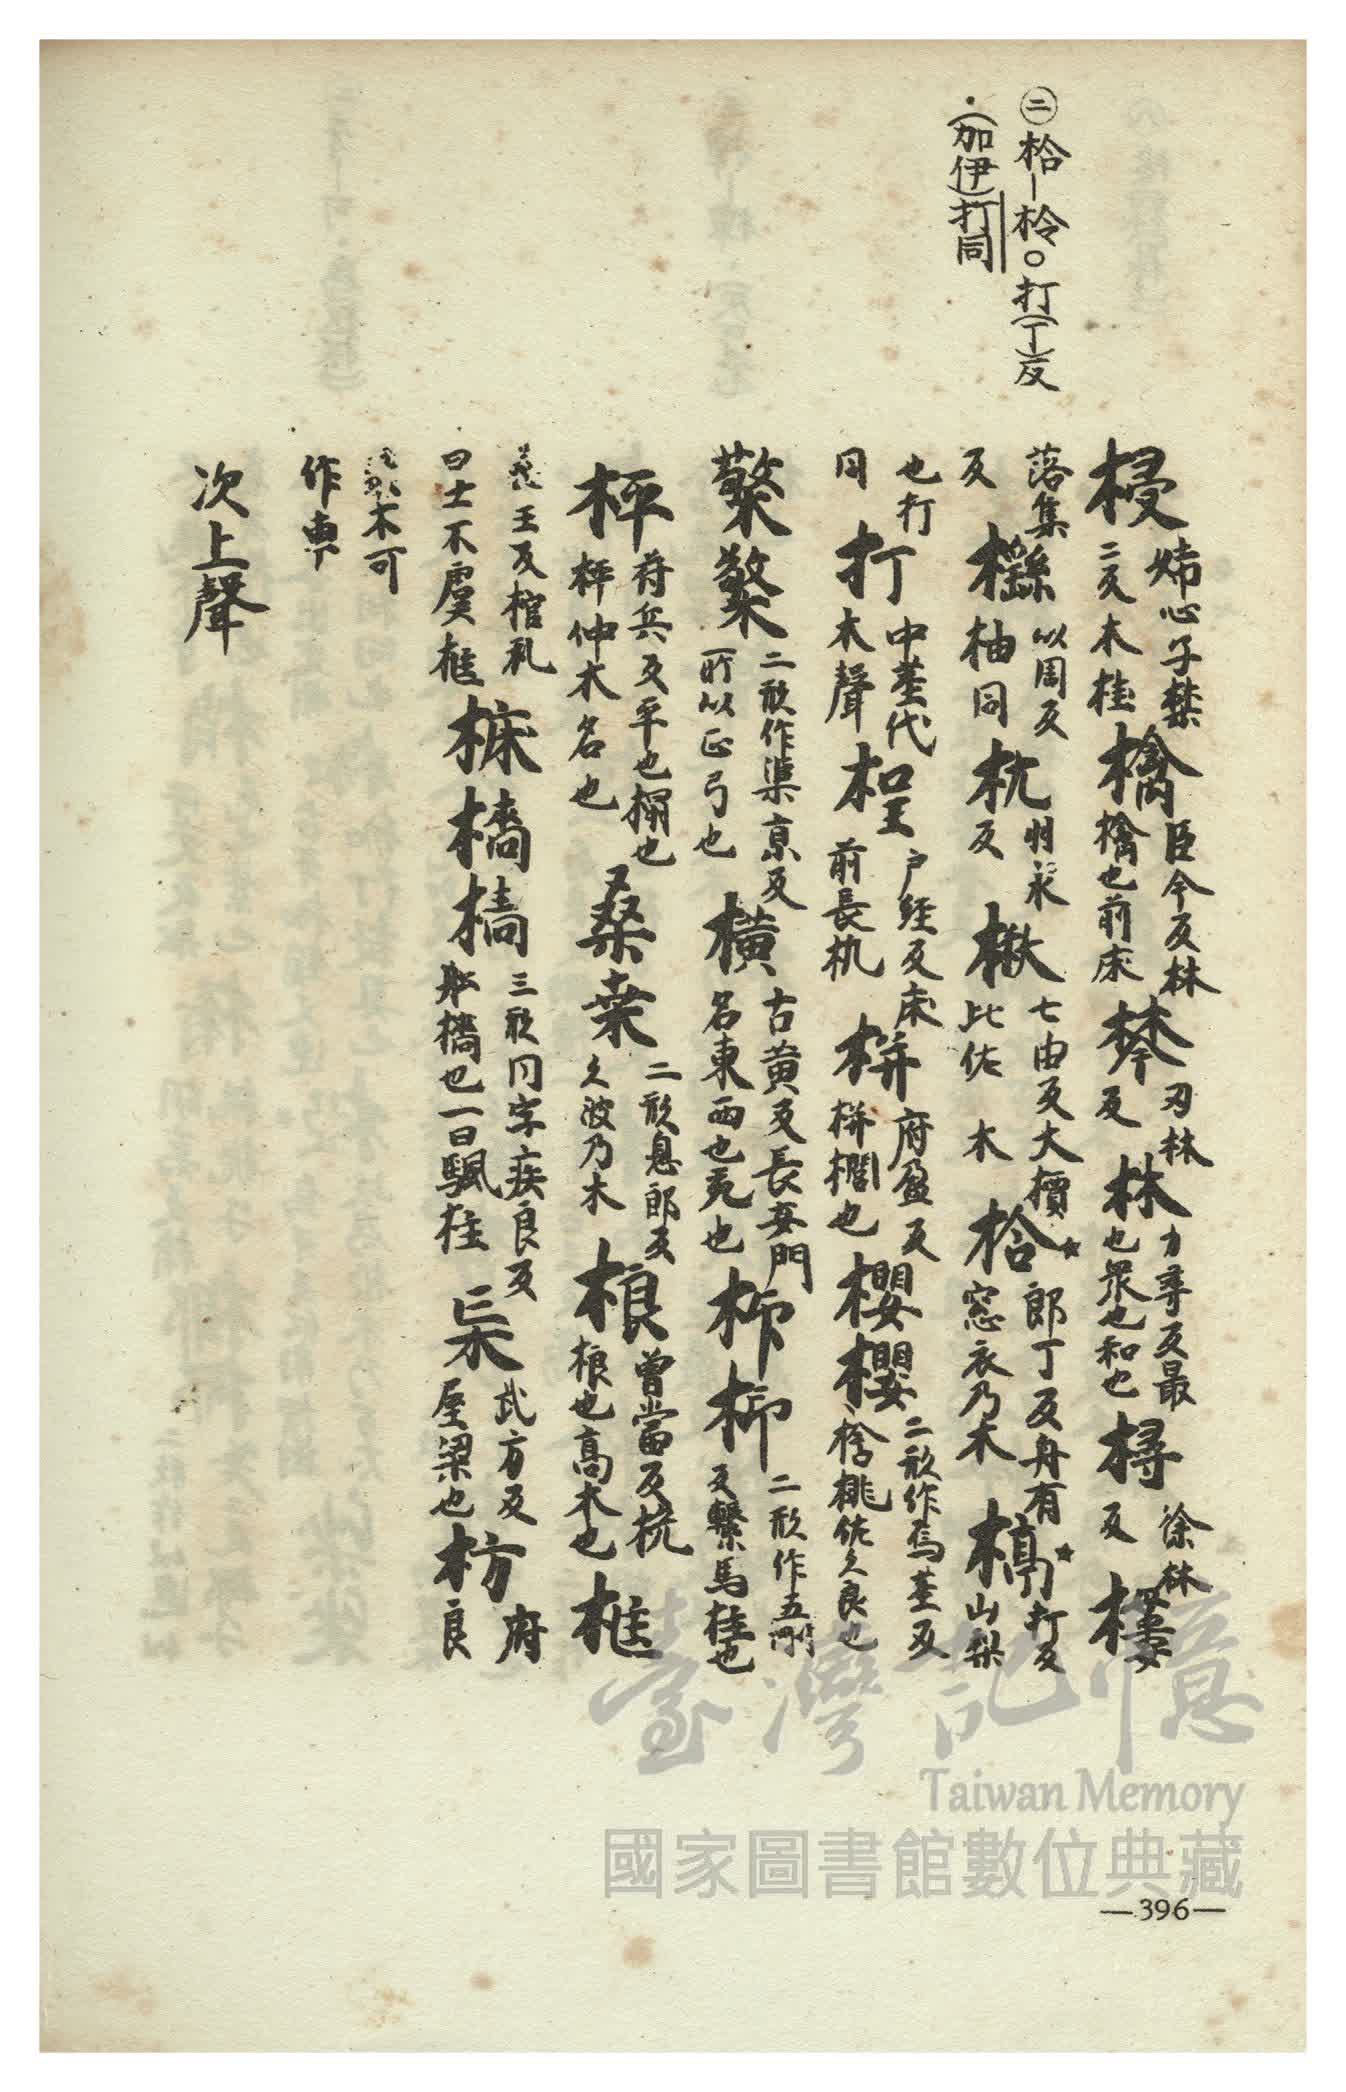 ㊁枱—柃○打(丁)反
·(加伊)打同
梫 二反木桂 檎 臣今反林檎也前床 棽 刃林反 林 力尋反最也衆也和也 樳 徐林反 樓
落集反 櫾 以周反柚同 枕 反 楸 七由反大檟比佐木 枱 郎丁反舟有窓衣乃木 樗 打反山梨
也打同 打 中莖代木聲 桯 户経反床前長机 栟 府盈反栟櫚也 櫻櫻 二形作烏莖反桃佐久良也
檠檠 二形作渠京反所以正弓也 橫 古黄反長安門名東西也充也 枊枊 二形作五剛反繫馬柱也
枰 符兵反平也榻也枰仲木名也 桑桒 二形息郎反久波乃木 桹 曾當反桄桹也高木也 框
王反棺礼曰士不虞框 樯檣 三形同字疾良反舩檣也一曰颿柱 杗 武方反屋梁也 枋 府良
木可作車
次上聲
—396—
臺灣記憶
Taiwan Memory
國家圖書館數位典藏